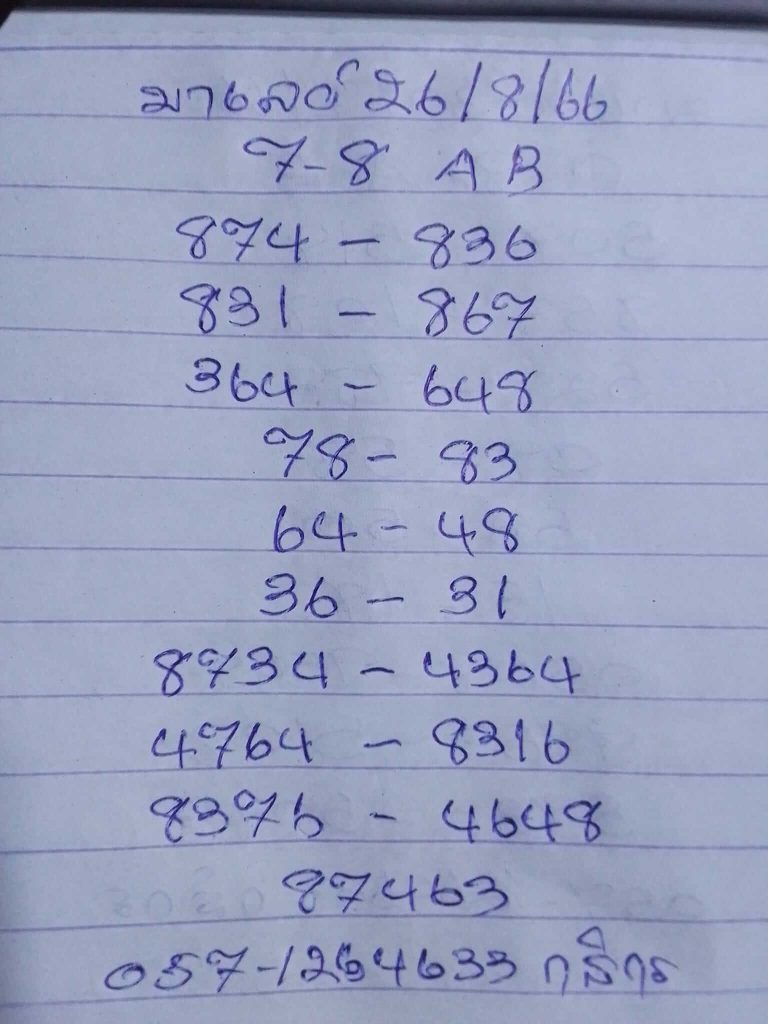 มาเลย์ 26/8/66
7-8 A B
874 - 836
831 - 867
364 - 648
78 - 83
64 - 48
36 - 31
8734 - 4364
4764 - 8316
8376 - 4648
87463
057-1264633